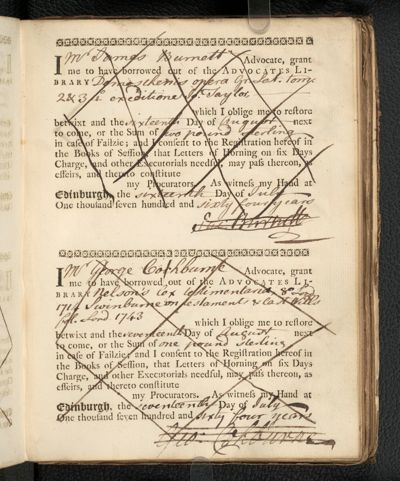 I Mr James Burnett Advocate, grant
me to have borrowed out of the ADVOCATES LI-
BRARY Demosthenis opera Gr. Lat. Tom.
2 & 3 ex editione Taylor
which I oblige me to restore
betwixt and the sixteenth Day of August next
to come, or the Sum of two pound sterling
in case of Failzie; and I consent to the Registration hereof in
the Books of Session, that Letters of Horning on six Days
Charge, and other Executorials needful, may pass thereon, as
effeirs, and thereto constitute
my Procurators. As witness my Hand at
Edinburgh, the sixteenth Day of July
One thousand seven hundred and sixty four years
Burnett
I Mr George Cockburn Advocate, grant
me to have borrowed out of the ADVOCATES LI-
BRARY Nelson's Lex testimentaria Lond
1714 Swinburne on testaments & last Wills
Lond 1743
which I oblige me to restore
betwixt and the seventeenth Day of August next
to come, or the Sum of one pound sterling
in case of Failzie; and I consent to the Registration hereof in
the Books of Session, that Letters of Horning on six Days
Charge, and other Executorials needful, may pass thereon, as
effeirs, and thereto constitute
my Procurators. As witness my Hand at
Edinburgh, the seventeenth Day of July
One thousand seven hundred and sixty four years
Geo: Cockburn